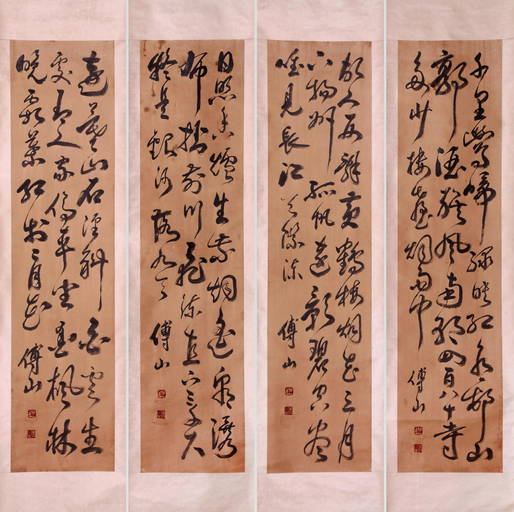 千里鶯啼綠映紅水村山
郭酒旗風南朝四百八十寺
多少樓臺烟雨中 傅山
故人西辭黃鶴樓烟花三月
下揚州孤帆遠影碧空盡
唯見長江天際流 傅山
日照香爐生紫烟遙看瀑
布掛前川飛流直下三千尺
疑是銀河落九天 傅山
遠上寒山石徑斜白雲生
處有人家停車坐愛楓林
晚霜葉紅於二月花 傅山